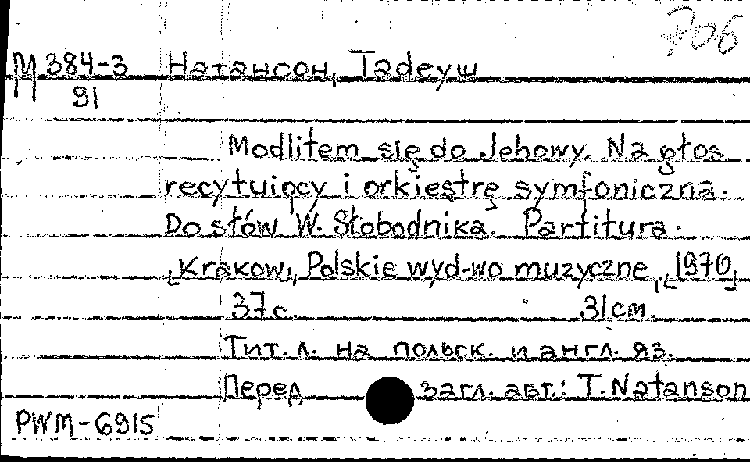 706
М 384-3 Натансон, Тадеуш
91
Modlitem się do Jehowy. Na głos
recytuiącу i orkiestrę symfoniczna.
Do słów W. Słobodnika. Partitura.
[Krakow], Polskie wyd-wo muzyczne, [1970]
37с. 31см.
Тит. л. на польск. и англ. яз.
Перед загл. авт.: T. Natanson
PWM-6915